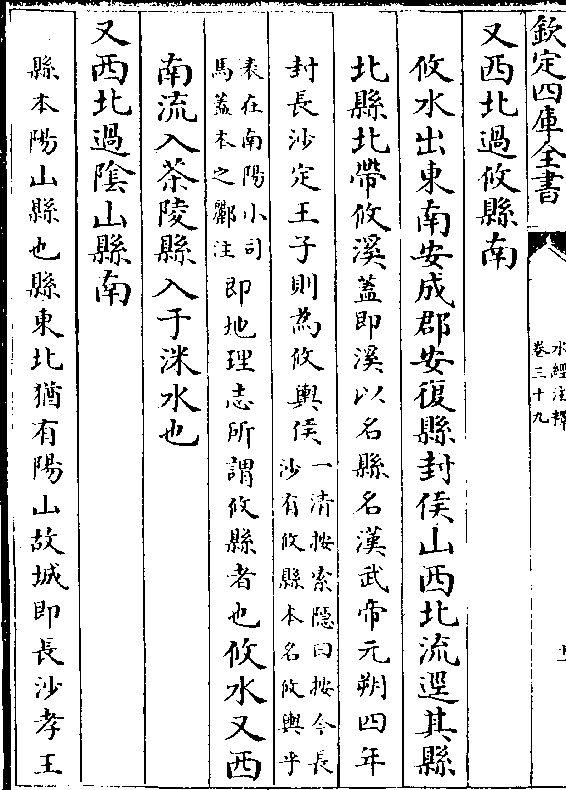 欽定四庫全書
水經注釋
卷三十九
又西北過攸縣南
攸水出東南安成郡安復縣封侯山西北流逕其縣
北縣北帶攸溪蓋即溪以名縣名漢武帝元朔四年
封長沙定王子則為攸輿侯
一清按索隱曰按今長
沙有攸縣本名攸輿乎
表在南陽小司
馬蓋本之酈注
即地理志所謂攸縣者也攸水又西
南流入茶陵縣入于洣水也
又西北過隂山縣南
縣本陽山縣也縣東北猶有陽山故城即長沙孝王